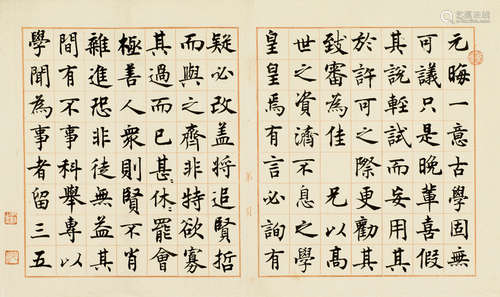 元晦一意古學固無
可議只是晚輩喜假
其說輕試而妄用其
於許可之際更勸其
致審為佳 兄以高
世之資濟不息之學
皇皇焉有言必詢有
疑必改蓋將追賢哲
而與之齊非特欲寡
其過而已甚休罷會
極善人衆則賢不肖
雜進恐非徒無益其
間有不事科舉專以
學聞為事者留三五